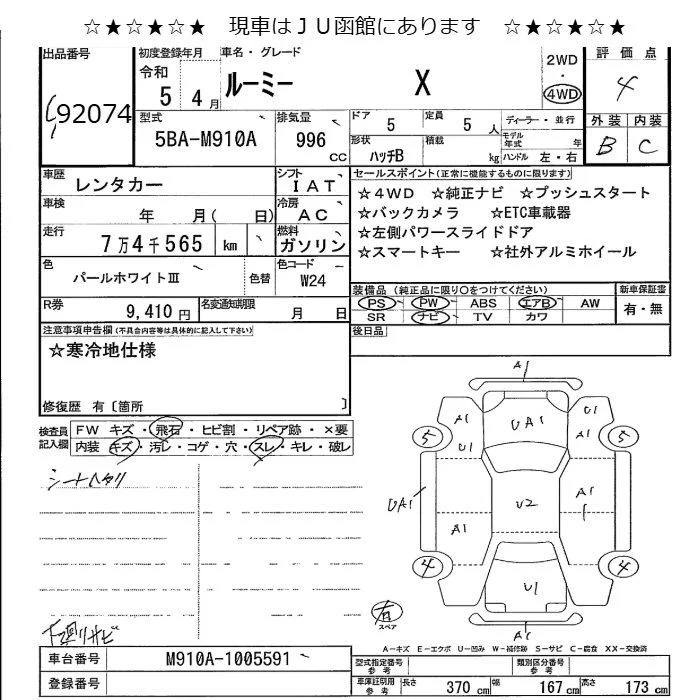 ☆★☆★☆★　現車はＪＵ函館にあります　☆★☆★☆★
出品番号 初度登録年月 車名・グレード 2WD・4WD 評価点
92074 令和 5年 4月 ルーミー X 4
型式 排気量 ドア 5 定員 5人 ディーラー・並行 外装 内装
5BA-M910A 996 CC 形状 ハッチB 積載 kg モデル年式 年 ハンドル 左・右 B C
車歴 レンタカー シフト IAT セールスポイント(正常に機能するものに限ります)
車検 年 月( 日) 冷房 AC ☆４WD ☆純正ナビ ☆プッシュスタート
☆バックカメラ ☆ETC車載器
走行 7万4千565 km 燃料 ガソリン ☆左側パワースライドドア
☆スマートキー ☆社外アルミホイール
色 パールホワイトⅢ 色替 色コード W24
装備品 (純正品に限り○をつけてください) 新車保証書
R券 9,410円 名変通知期限 月 日 PS PW ABS エアB AW 有・無
SR ナビ TV カワ
注意事項申告欄(不具合内容等は具体的に記入して下さい) 後日品
☆寒冷地仕様
修復歴 有〔箇所 〕
検査員記入欄 FW キズ・飛石・ヒビ割・リペア跡・×要
内装 キズ・汚レ・コゲ・穴・スレ・キレ・破レ
シートヘタリ
A1
A1 UA1 U1
5 U1 A1 5
UA1 U2 A1
A1
4 U1 4
有
スペア
A1
下回りサビ
A-キズ E-エクボ U-凹み W-補修跡 S-サビ C-腐食 XX-交換済
車台番号 M910A-1005591 型式指定番号 参考 類別区分番号 参考
登録番号 車庫証明用 参考 長さ 370 cm 幅 167 cm 高さ 173 cm